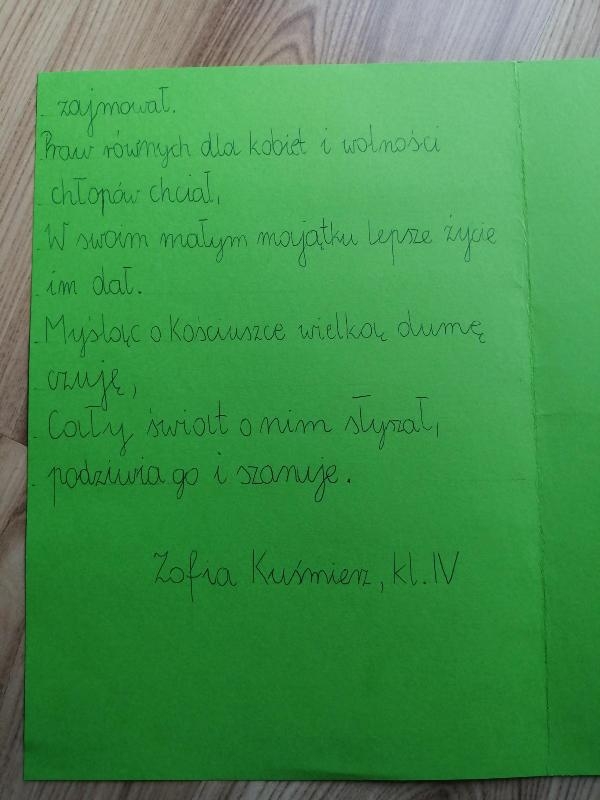 zajmował.
Praw równych dla kobiet i wolności
chłopów chciał,
W swoim małym majątku lepsze życie
im dał.
Myśląc o Kościuszce wielką dumę
czuję,
Cały świat o nim słyszał,
podziwia go i szanuje.
Zofia Kuśmierz, kl. IV